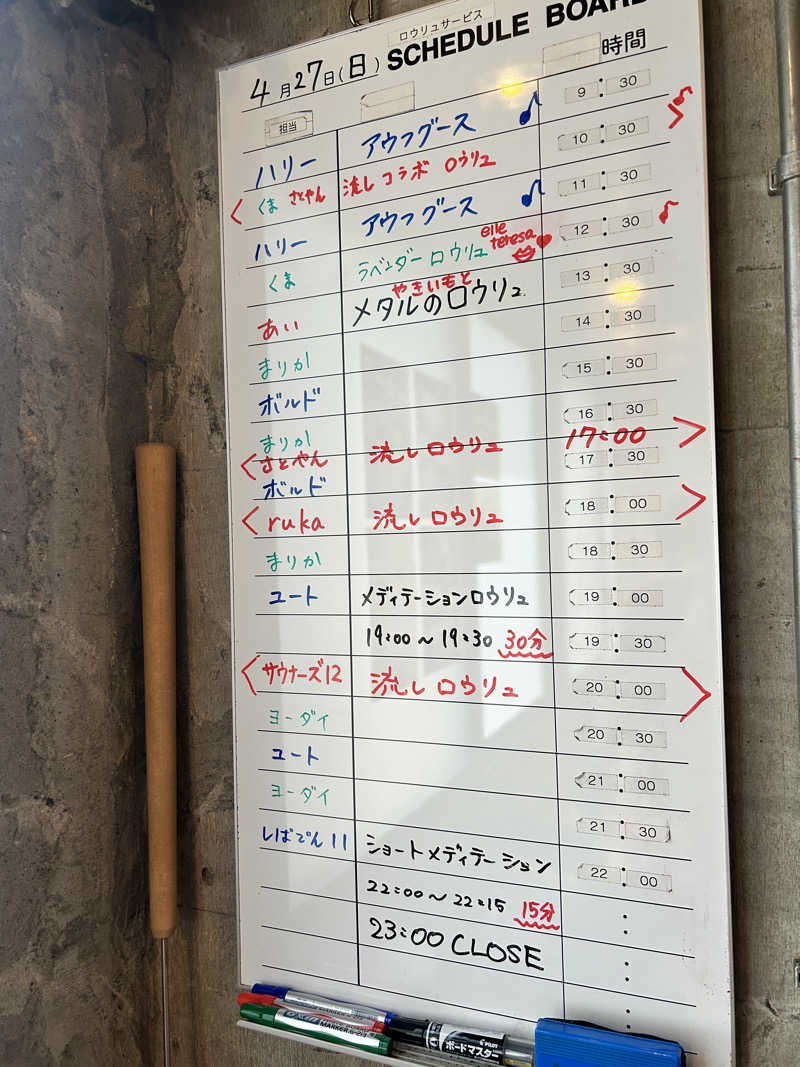 ロウリュサービス
SCHEDULE BOARD
4月27日(日)
時間
担当
ハリー アウフグース 9:30
くま さとやん 流しコラボ ロウリュ 10:30
ハリー アウフグース 11:30
くま ラベンダーロウリュ elle teresa 12:30
やきいもと
あい メタルのロウリュ 13:30
まりか 14:30
ボルド 15:30
まりか 16:30
さとやん 流しロウリュ 17:00
ボルド 17:30
ruka 流しロウリュ 18:00
まりか 18:30
ユート メディテーションロウリュ 19:00
19:00〜19:30 30分 19:30
サウナーズ12 流しロウリュ 20:00
ヨーダイ 20:30
ユート 21:00
ヨーダイ 21:30
しばてん11 ショートメディテーション 22:00
22:00〜22:15 15分
23:00 CLOSE
PILOT
ボードマスター